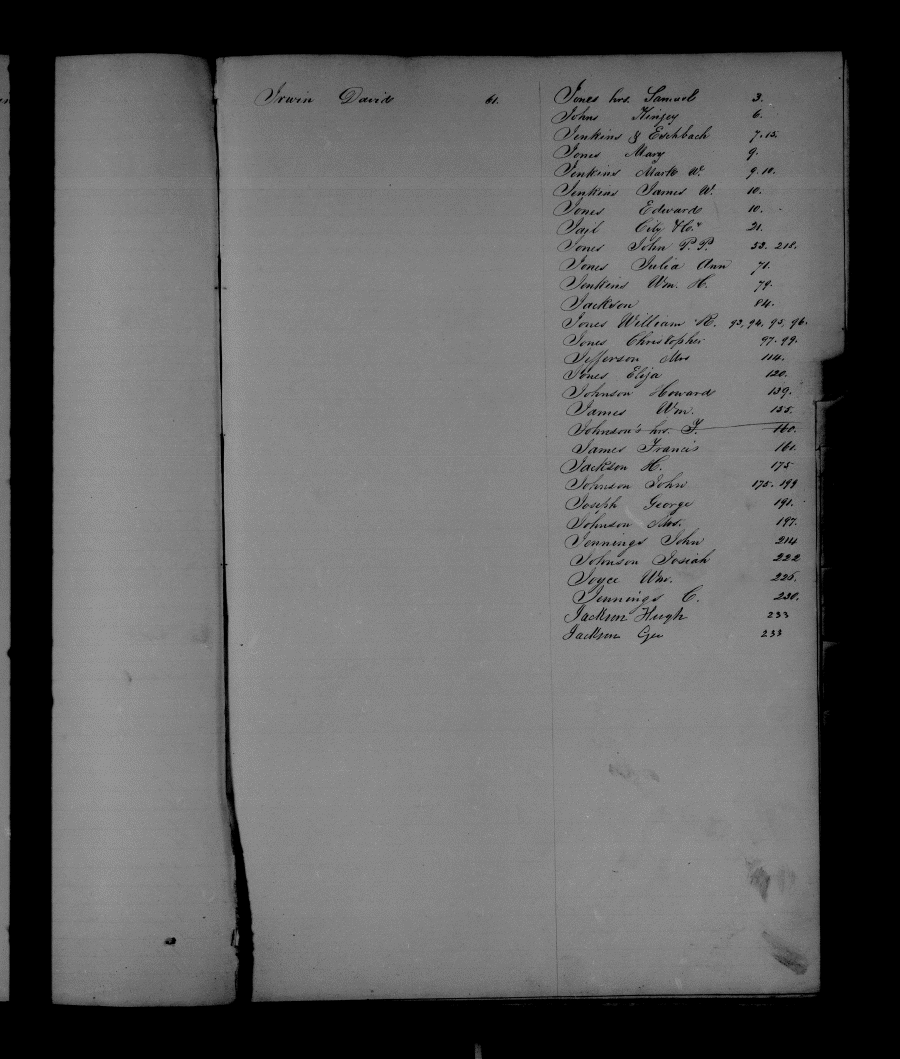 Irwin David 61.
Jones hrs. Samuel 3.
Johns Kinsey 6.
Jenkins & Eschbach 7. 15.
Jones Mary 9.
Jenkins Mark W. 9. 10.
Jenkins James W. 10.
Jones Edward 10.
Jail City 21.
Jones John P. P. 218.
Jones Julia Ann 71.
Jenkins Wm. H. 79.
Jackson 84.
Jones William R. 93, 94, 95, 96.
Jones Christopher 97. 99.
Jefferson Mrs 114.
Jones Eliza 120.
Johnson Howard 139.
James Wm. 155.
Johnson's hrs. F. 160.
James Francis 161.
Jackson H. 175
Johnson John 175. 199
Joseph George 191.
Johnson Mrs. 197.
Jennings John 214
Johnson Josiah 222
Joyce Wm. 225.
Jennings C. 230.
Jackson Hugh 233
Jackson Geo 233